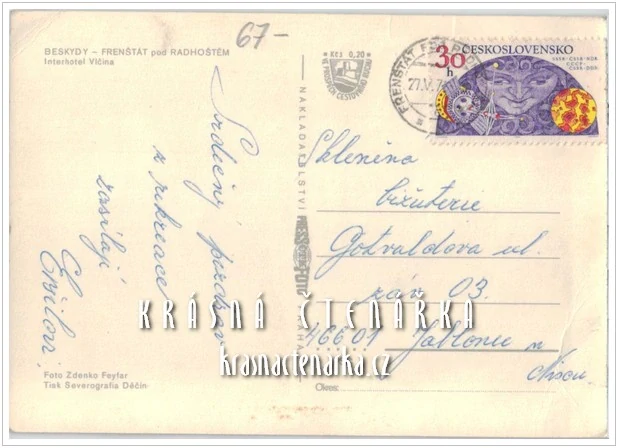 67-
BESKYDY – FRENŠTÁT pod RADHOŠTĚM
Interhotel Vlčina
Kčs 0,20
VE PROSPĚCH CESTOVNÍHO RUCHU
FRENŠTÁT P. RADH.
27.V.
30 h
ČESKOSLOVENSKO
Srdečný pozdrav
z rekreace
zasílají
NAKLADATELSTVÍ
PRESSFOTO
PRAHA
Sklenina
bižuterie
Gotvaldova ul.
záv 03.
46601 Jablonec n
Nisou
KRÁSNÁ ČTENÁŘKA
krasnactenarka.cz
Foto Zdenko Feyfar
Tisk Severografia Děčín
Okres: